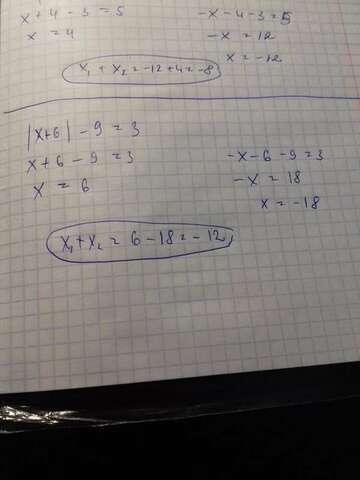 x+4-3=5 -x-4-3=5
x = 4 -x = 12
x = -12
x₁ + x₂ = -12+4=-8
|x+6| - 9 = 3
x+6 - 9 = 3 -x-6-9=3
x = 6 -x = 18
x = -18
x₁+x₂ = 6-18=-12